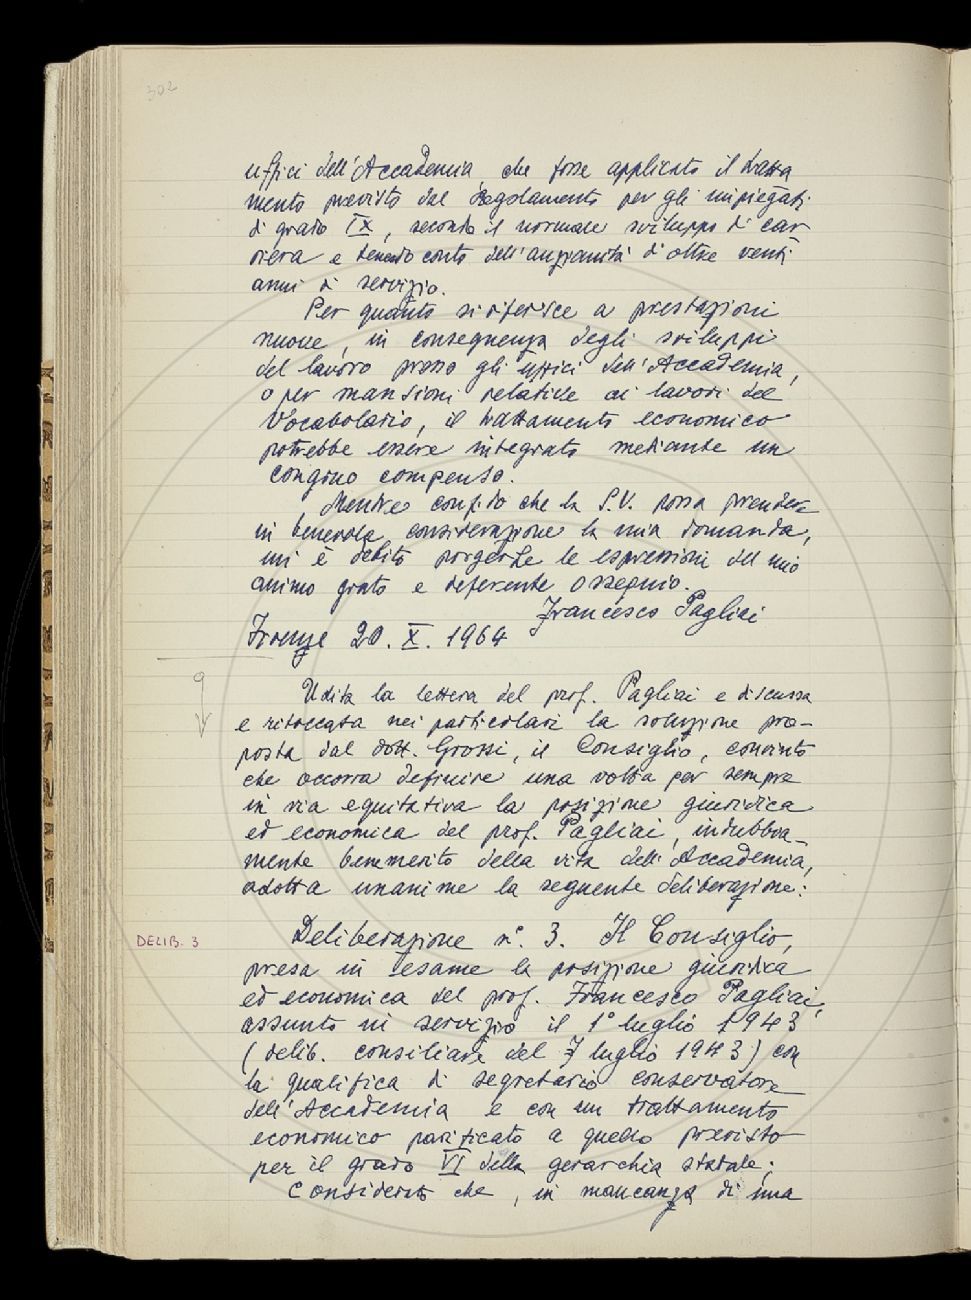 302
uffici dell'Accademia, che fosse applicato il tratta
mento previsto dal Regolamento per gli impiegati
di grado IX, secondo il normale sviluppo di car
riera e tenendo conto dell'anzianità d'oltre venti
anni di servizio.
Per quanto si riferisce a prestazioni
nuove, in conseguenza degli sviluppi
del lavoro presso gli uffici dell'Accademia,
o per mansioni relative ai lavori del
Vocabolario, il trattamento economico
potrebbe essere integrato mediante un
congruo compenso.
Mentre confido che la S.V. possa prendere
in benevola considerazione la mia domanda,
mi è debito porgerLe le espressioni del mio
animo grato e deferente ossequio.
Francesco Pagliai
Firenze 20. X. 1964
9
Udita la lettera del prof. Pagliai e discussa
e ritoccata nei particolari la soluzione pro-
posta dal dott. Grossi, il Consiglio, convinto
che occorra definire una volta per sempre
in via equitativa la posizione giuridica
ed economica del prof. Pagliai, indubbia-
mente benemerito della vita dell'Accademia,
adotta unanime la seguente deliberazione:
DELIB. 3
Deliberazione n°. 3. Il Consiglio,
presa in esame la posizione giuridica
ed economica del prof. Francesco Pagliai,
assunto in servizio il 1° luglio 1943
(delib. consiliare del 7 luglio 1943) con
la qualifica di segretario conservatore
dell'Accademia e con un trattamento
economico parificato a quello previsto
per il grado VI della gerarchia statale;
Considerato che, in mancanza di una